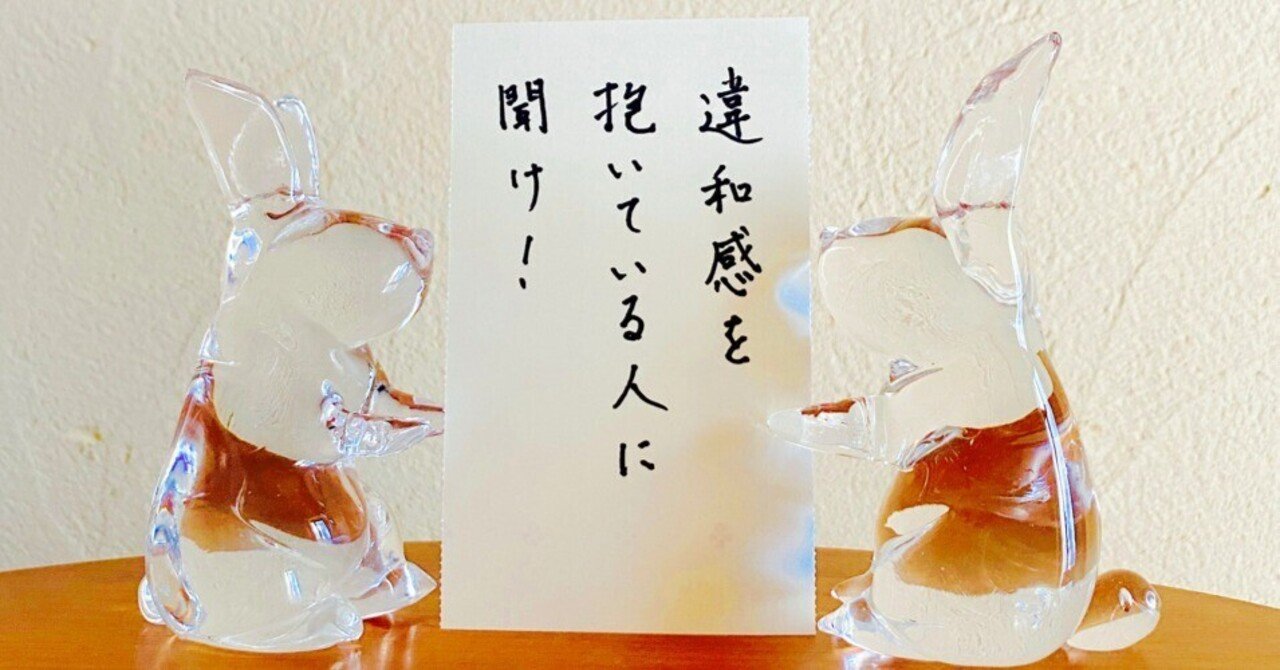 違和感を
抱いている人に
聞け!